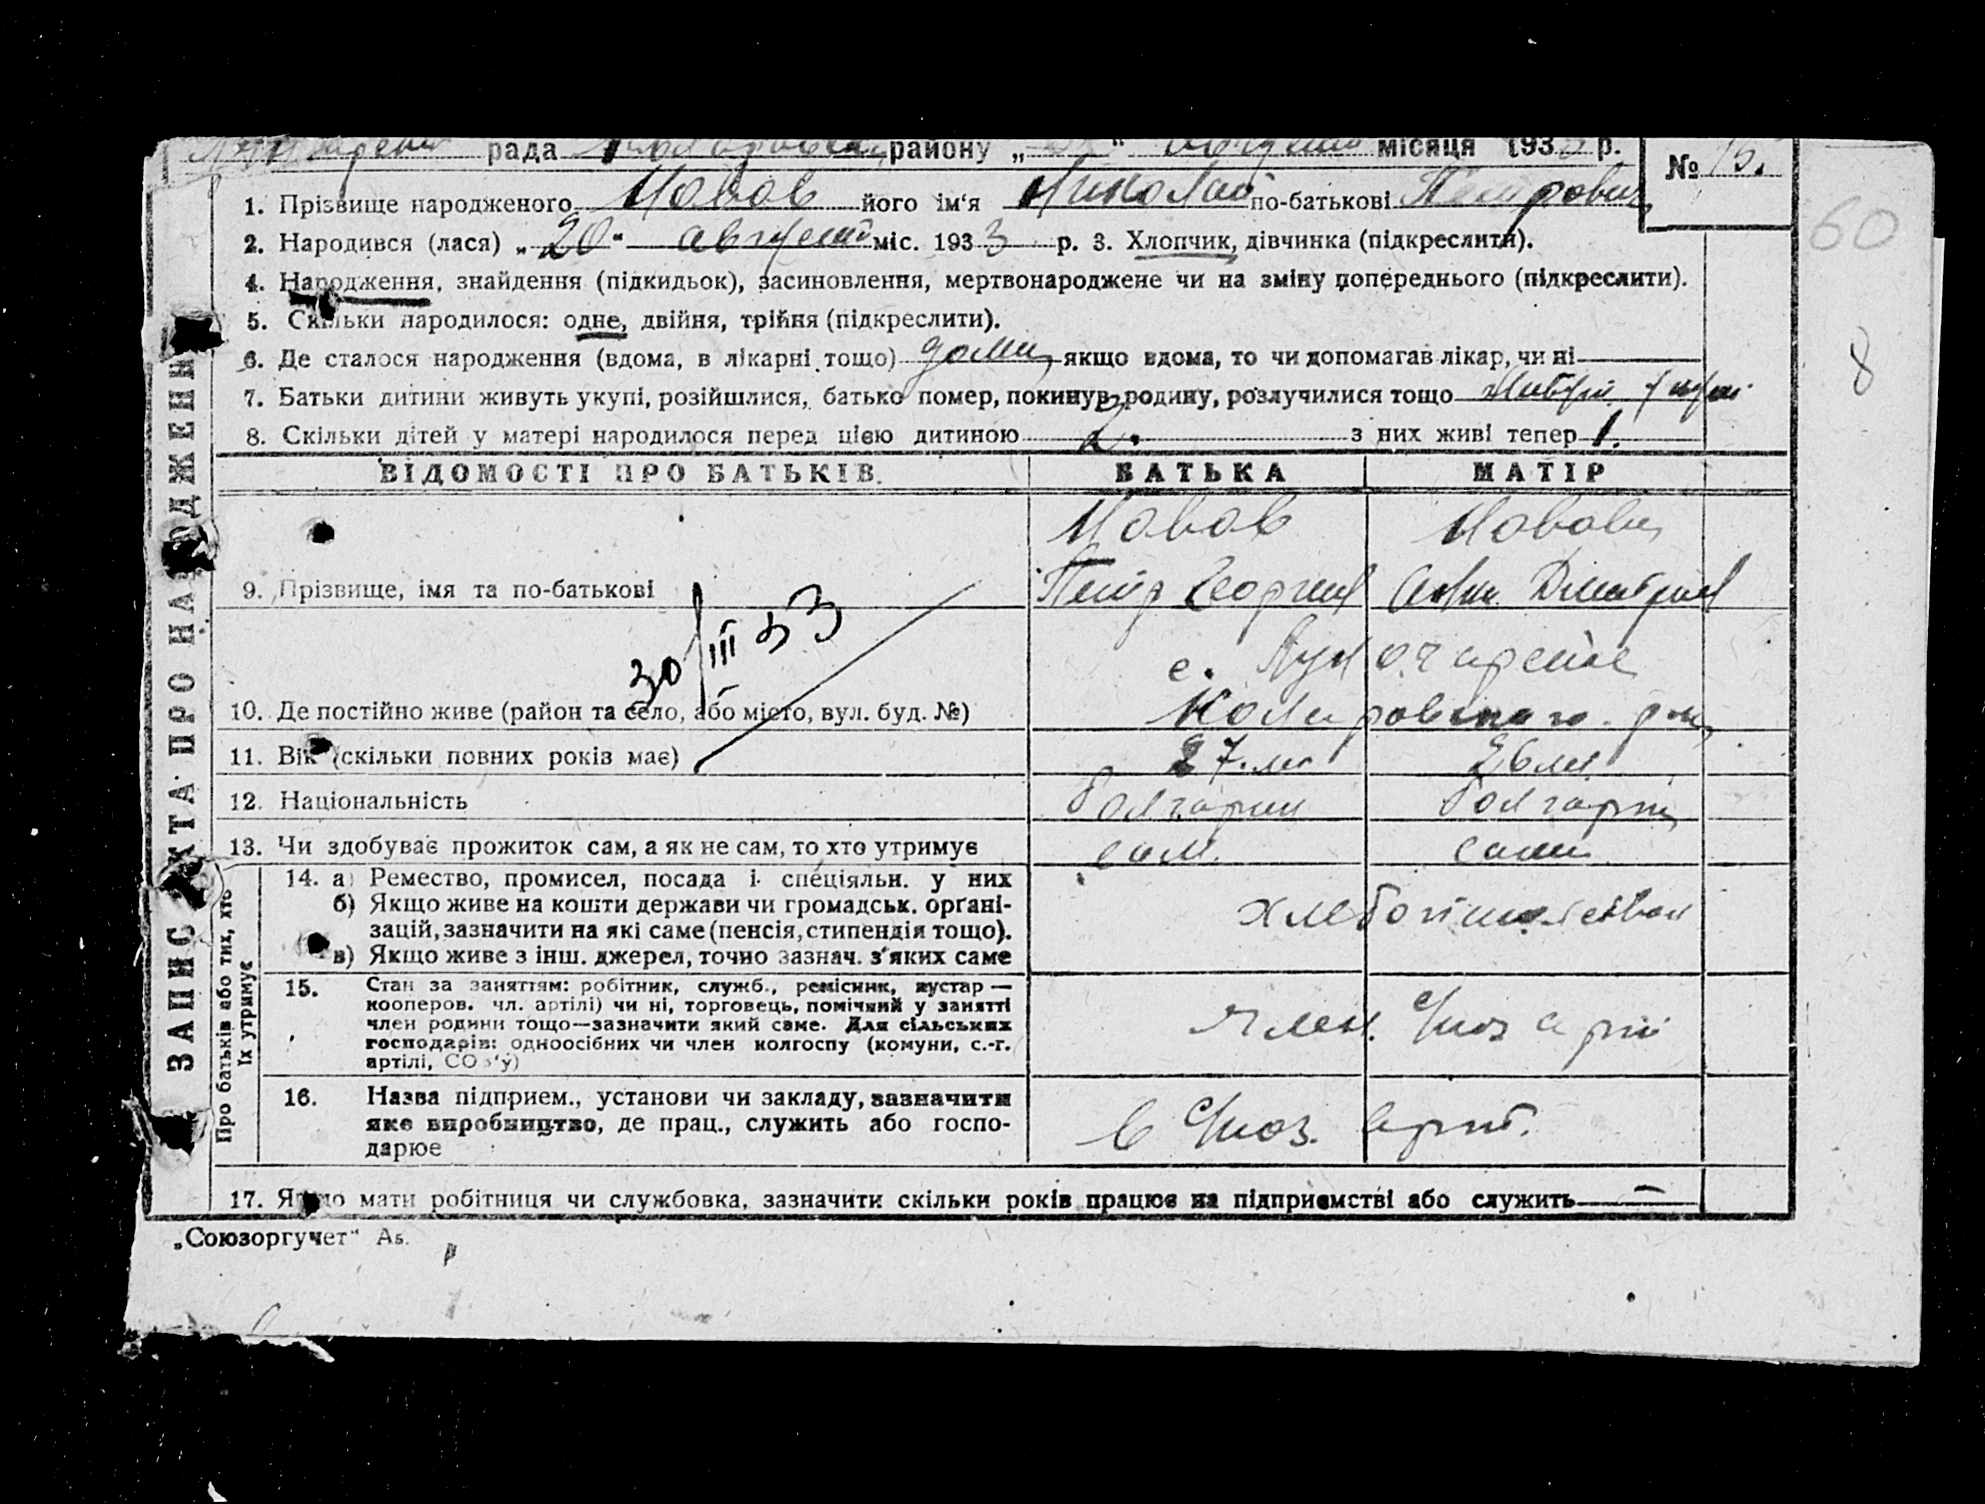 рада району „ “ місяця 193 р. № 15.
1. Прізвище народженого Новов його ім‘я Николай по-батькові Петрович
2. Народився (лася) „20“ август міс. 1933 р. 3. Хлопчик, дівчинка (підкреслити).
60
4. Народження, знайдення (підкидьок), засиновлення, мертвонароджене чи на зміну попереднього (підкреслити).
5. Скільки народилося: одне, двійня, трійня (підкреслити).
6. Де сталося народження (вдома, в лікарні тощо) дома якщо вдома, то чи допомагав лікар, чи ні
8
7. Батьки дитини живуть укупі, розійшлися, батько помер, покинув родину, розлучилися тощо
8. Скільки дітей у матері народилося перед цією дитиною 2. з них живі тепер 1.
ВІДОМОСТІ ПРО БАТЬКІВ. БАТЬКА МАТІР
Новов Новова
9. Прізвище, імя та по-батькові Петр Георгиев Анн. Дмитриев
30/III 33
с.
10. Де постійно живе (район та село, або місто, вул. буд. №) Коларовского
11. Вік (скільки повних років має) 27. лет 26 лет
12. Національність болгарин болгарка
13. Чи здобуває прожиток сам, а як не сам, то хто утримує сам. сама
14. а) Ремество, промисел, посада і спеціяльн. у них
б) Якщо живе на кошти держави чи громадськ. орґані-
зацій, зазначити на які саме (пенсія, стипендія тощо).
в) Якщо живе з інш. джерел, точно зазнач. з‘яких саме
15. Стан за заняттям: робітник, служб., ремісник, кустар —
кооперов. чл. артілі) чи ні, торговець, помічний у занятті
член родини тощо—зазначити який саме. Для сільських
господарів: одноосібних чи член колгоспу (комуни, с.-г.
артілі, СОЗ‘у)
член.
16. Назва підприєм., установи чи закладу, зазначити
яке виробництво, де прац., служить або госпо-
дарює
в арт.
17. Якщо мати робітниця чи службовка, зазначити скільки років працює на підприємстві або служить —
„Союзоргучет“ А5.
ЗАПИС АКТА ПРО НАРОДЖЕННЯ
Про батьків або тих, хто
їх утримує